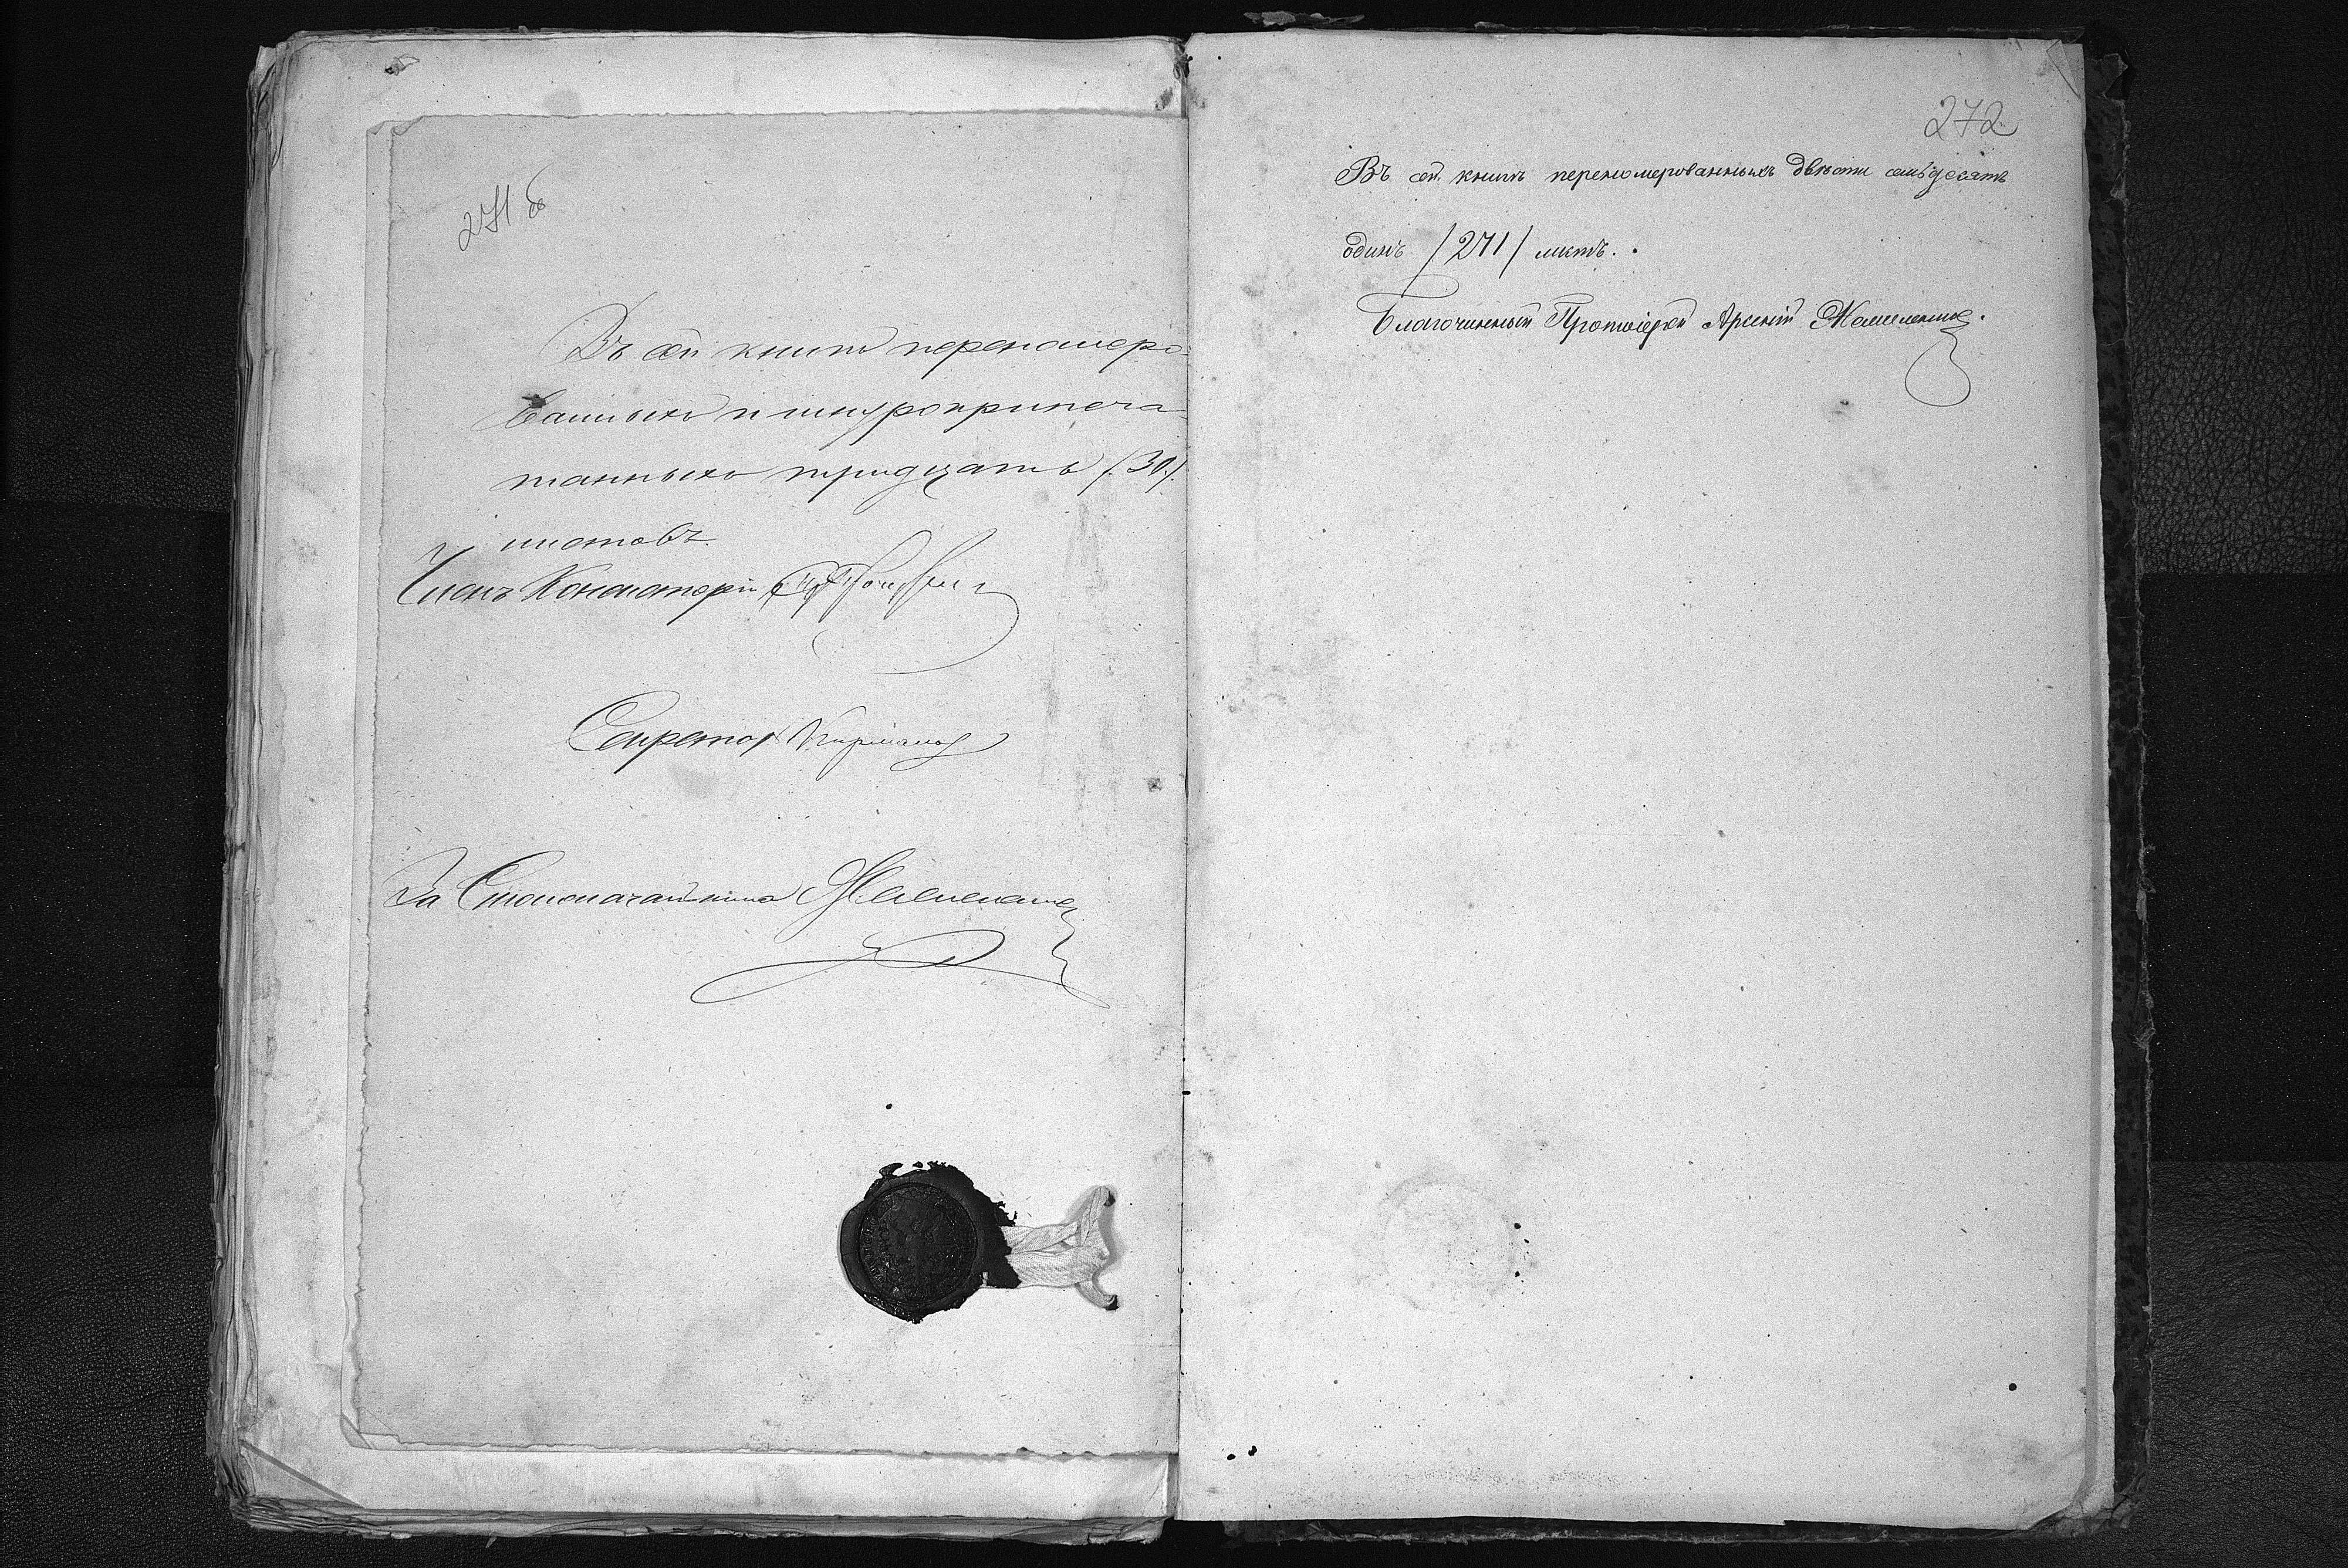 271 об
Въ сей книгѣ перенумеро-
ванныхъ и шнуроприпеча-
танныхъ тридцать (30)
листовъ.
Членъ Консисторіи
Секретарь
За Столоначальника
272
Въ сей книгѣ переномерованныхъ двѣсти семьдесятъ
одинъ /271/ листъ.
Благочинный Протоіерей Арсеній